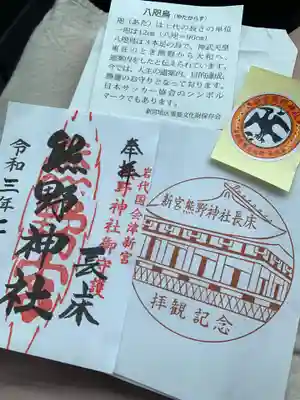 八咫烏(やたがらす)
咫(あた)は古代の長さの単位
一咫は12cm(八咫=90cm)
八咫烏は3本足の鳥で、神武天皇
東征のとき熊野から大和へ
道案内をしたと伝えられています。
今では、人生の道案内、目的達成、
勝運のお守りとなっております。
日本サッカー協会のシンボル
マークでもあります。
新宮地区重要文化財保存会
岩代国会津新宮
熊野神社御守護
奉拝
長床
熊野神社
令和三年
新宮熊野神社長床
拝観記念